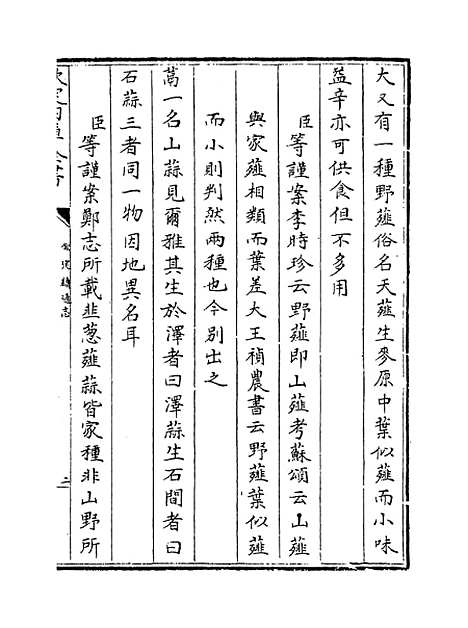 大又有一種野薤俗名天薤生麥原中葉似薤而小味
益辛亦可供食但不多用
臣等謹案李時珍云野薤即山薤考蘇頌云山薤
與家薤相類而葉差大王禎農書云野薤葉似薤
而小則判然兩種也今別出之
蒚一名山蒜見爾雅其生於澤者曰澤蒜生石間者曰
石蒜三者同一物因地異名耳
臣等謹案鄭志所載韭葱薤蒜皆家種非山野所
欽定四庫全書
欽定續通志
二